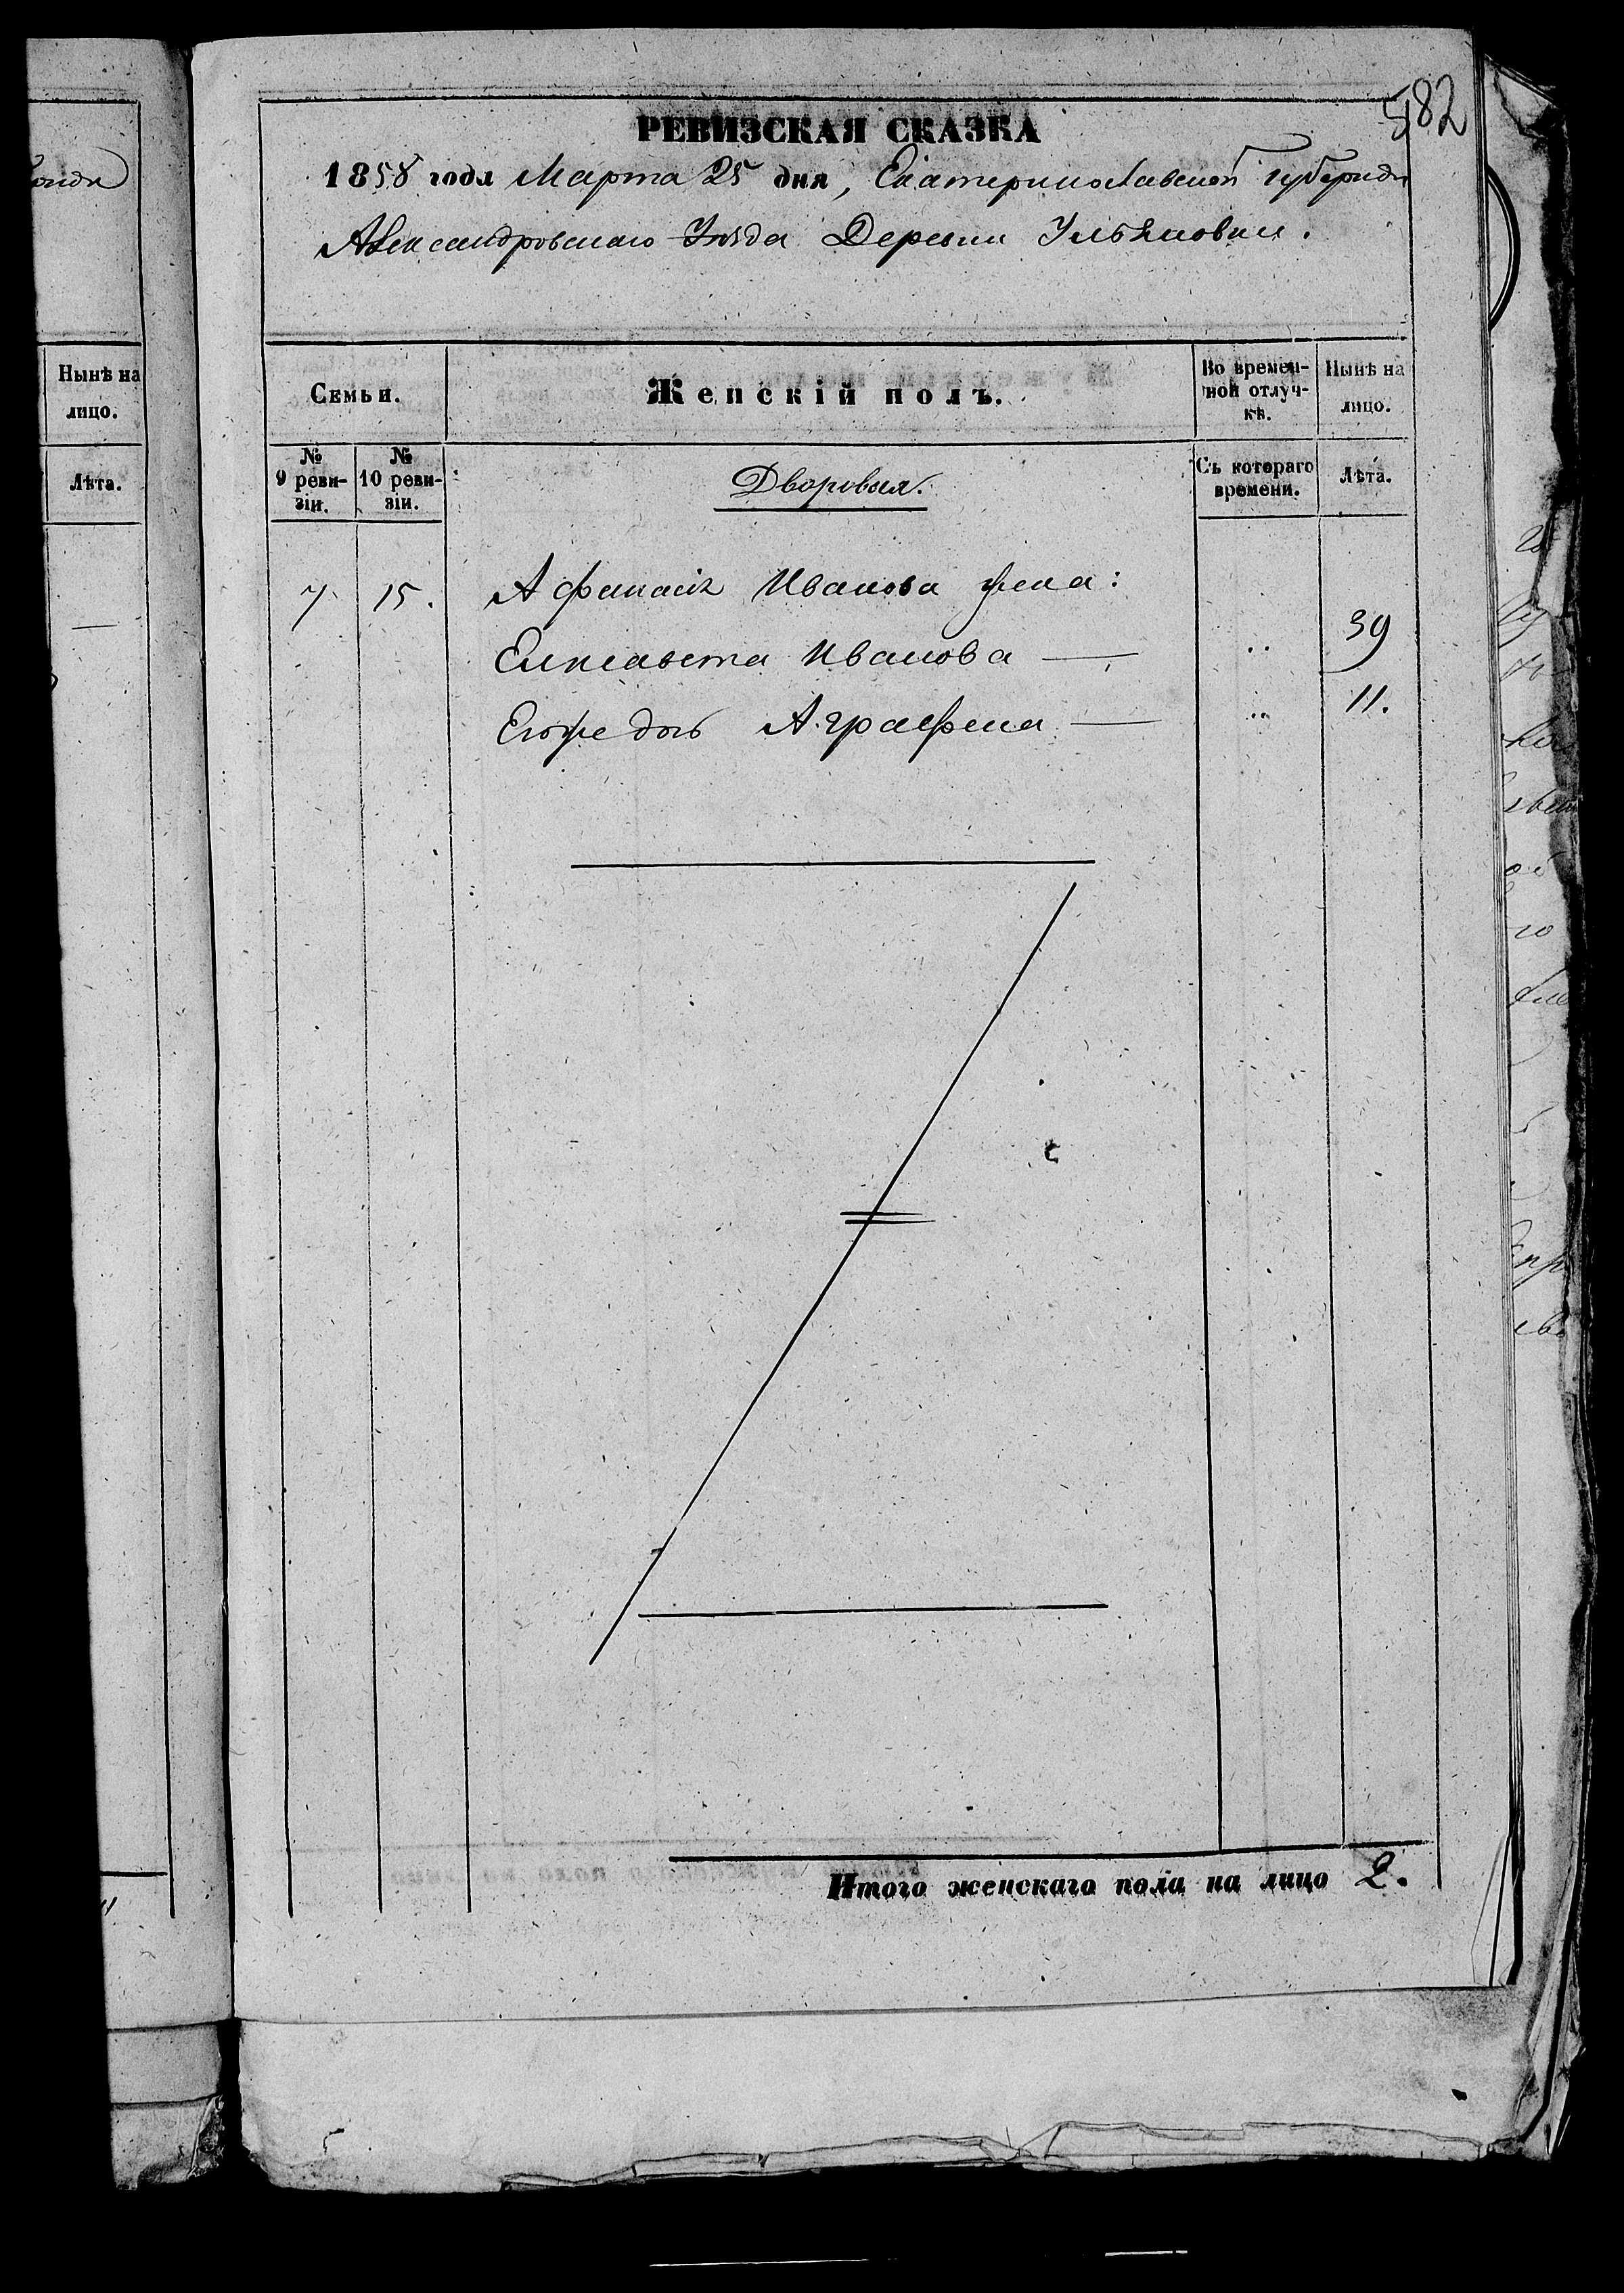 582
РЕВИЗСКАЯ СКАЗКА
1858 года Марта 25 дня, Екатеринославской Губерніи
Александровскаго Уѣзда Деревни Ульяновки.
Нынѣ на
лицо.
Лѣта.
Семьи.
Женскій полъ.
Во времен-
ной отлуч-
кѣ.
Нынѣ на
лицо.
№
9 реви-
зіи.
№
10 реви-
зіи.
Дворовыя.
Съ котораго
времени.
Лѣта.
7 15. Афанасія Иванова жена:
Елисавета Иванова — " 39
Егоже дочь Аграфена — " 11.
Итого женскаго пола на лицо 2.